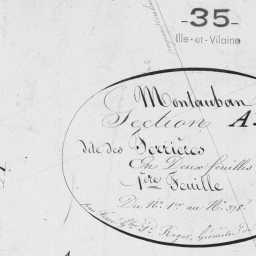 - 35 -
Ille-et-Vilaine
Montauban
Section A.
dite des Perrières
En Deux feuilles
1ère Feuille
Du N.o 1er au N.o 398.
par
Géomètre